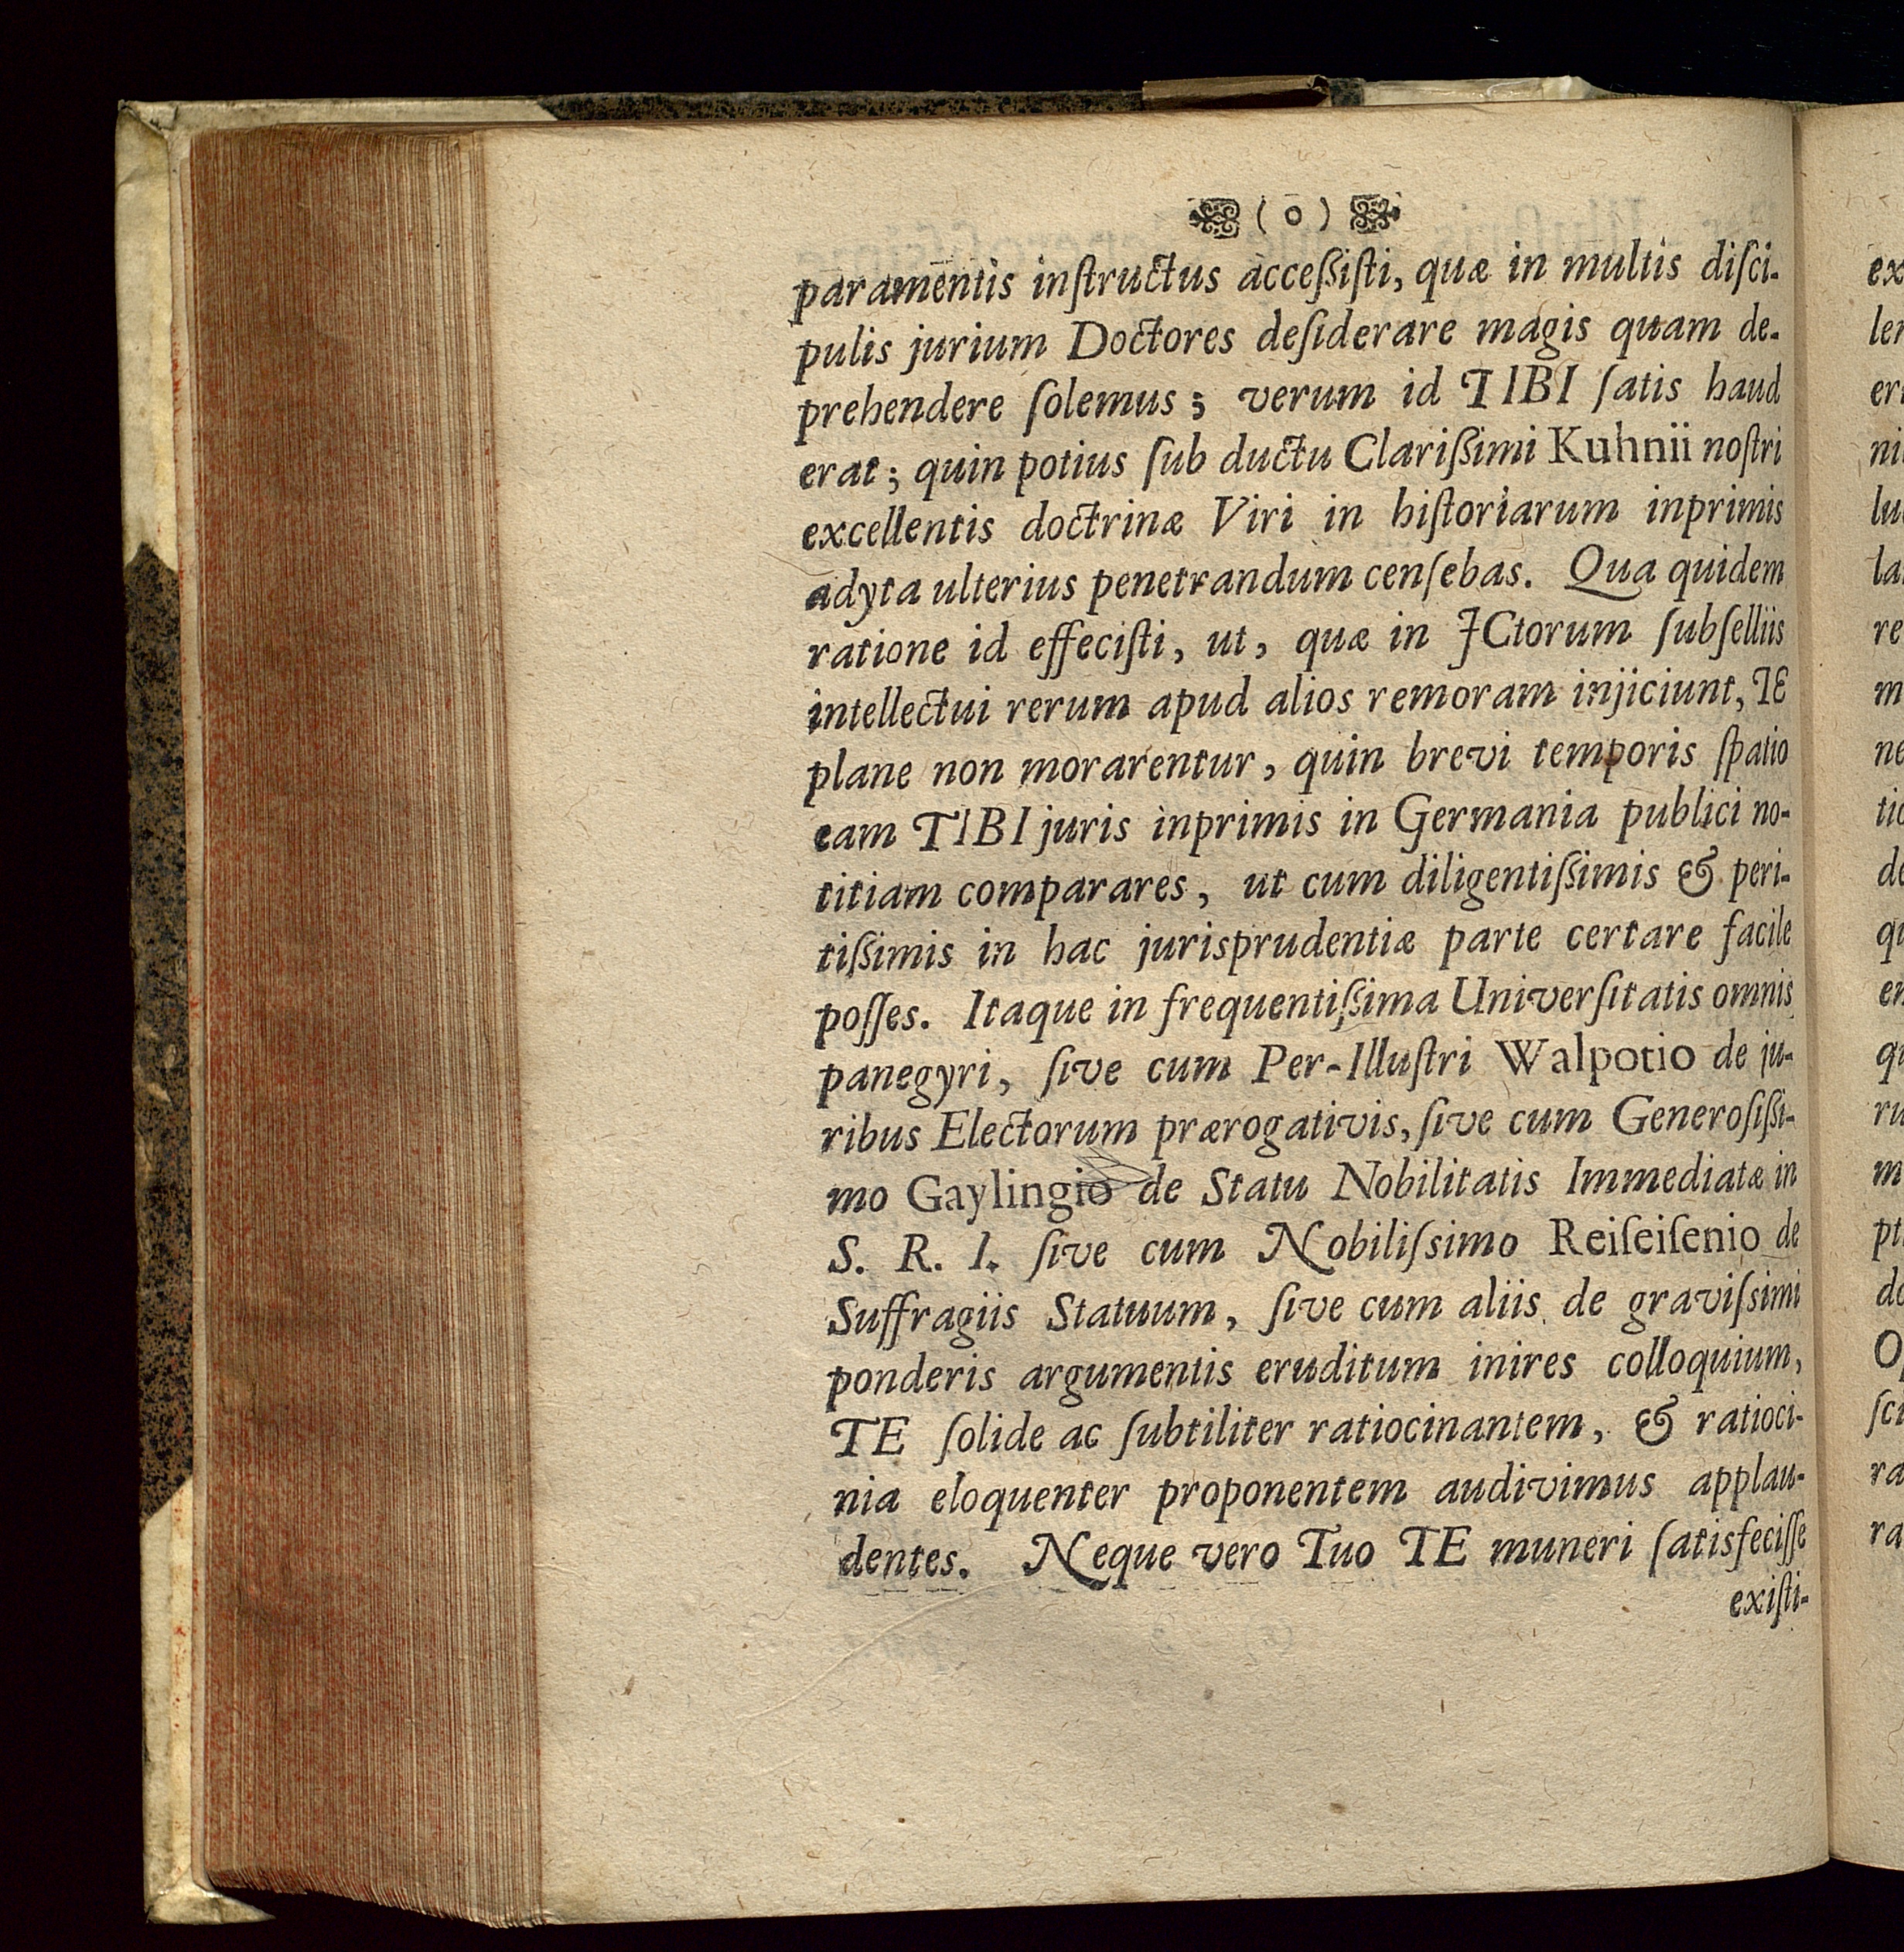 ( o )
paramentis inſtructus acceſsiſti, quæ in multis diſci-
pulis jurium Doctores deſiderare magis quam de-
prehendere ſolemus; verum id TIBI ſatis haud
erat; quin potius ſub ductu Clariſsimi Kuhnii noſtri
excellentis doctrinæ Viri in hiſtoriarum inprimis
adyta ulterius penetrandum cenſebas. Qua quidem
ratione id effeciſti, ut, quæ in JCtorum ſubſelliis
intellectui rerum apud alios remoram injiciunt, TE
plane non morarentur, quin brevi temporis ſpatio
eam TIBI juris inprimis in Germania publici no-
titiam comparares, ut cum diligentiſsimis & peri-
tiſsimis in hac jurisprudentiæ parte certare facile
poſſes. Itaque in frequentiſsima Univerſitatis omnis
panegyri, ſive cum Per-Illuſtri Walpotio de ju-
ribus Electorum prærogativis, ſive cum Generoſiſsi-
mo Gaylingio de Statu Nobilitatis Immediatæ in
S. R. I. ſive cum Nobiliſsimo Reiſeiſenio de
Suffragiis Statuum, ſive cum aliis de graviſsimi
ponderis argumentis eruditum inires colloquium,
TE ſolide ac ſubtiliter ratiocinantem, & ratioci-
nia eloquenter proponentem audivimus applau-
dentes. Neque vero Tuo TE muneri ſatisfeciſſe
exiſti-